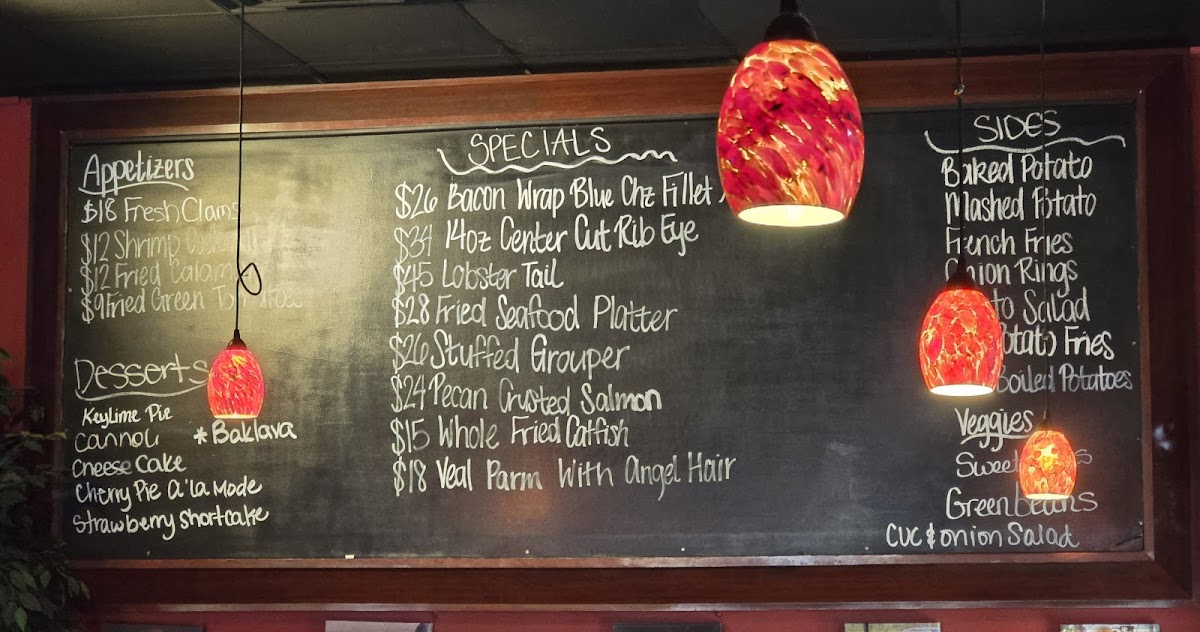 Appetizers
$18 Fresh Clams
$12 Shrimp
$12 Fried
$9 Fried Green
Desserts
Key Lime Pie
Cannoli
*Baklava
Cheese Cake
Cherry Pie a'la Mode
Strawberry Shortcake
SPECIALS
$26 Bacon Wrap Blue Chz Fillet
$34 14oz Center Cut Rib Eye
$45 Lobster Tail
$28 Fried Seafood Platter
$26 Stuffed Grouper
$24 Pecan Crusted Salmon
$15 Whole Fried Catfish
$18 Veal Parm With Angel Hair
SIDES
Baked Potato
Mashed Potato
French Fries
Onion Rings
Salad
Fries
Boiled Potatoes
Veggies
Green beans
CUC & onion Salad